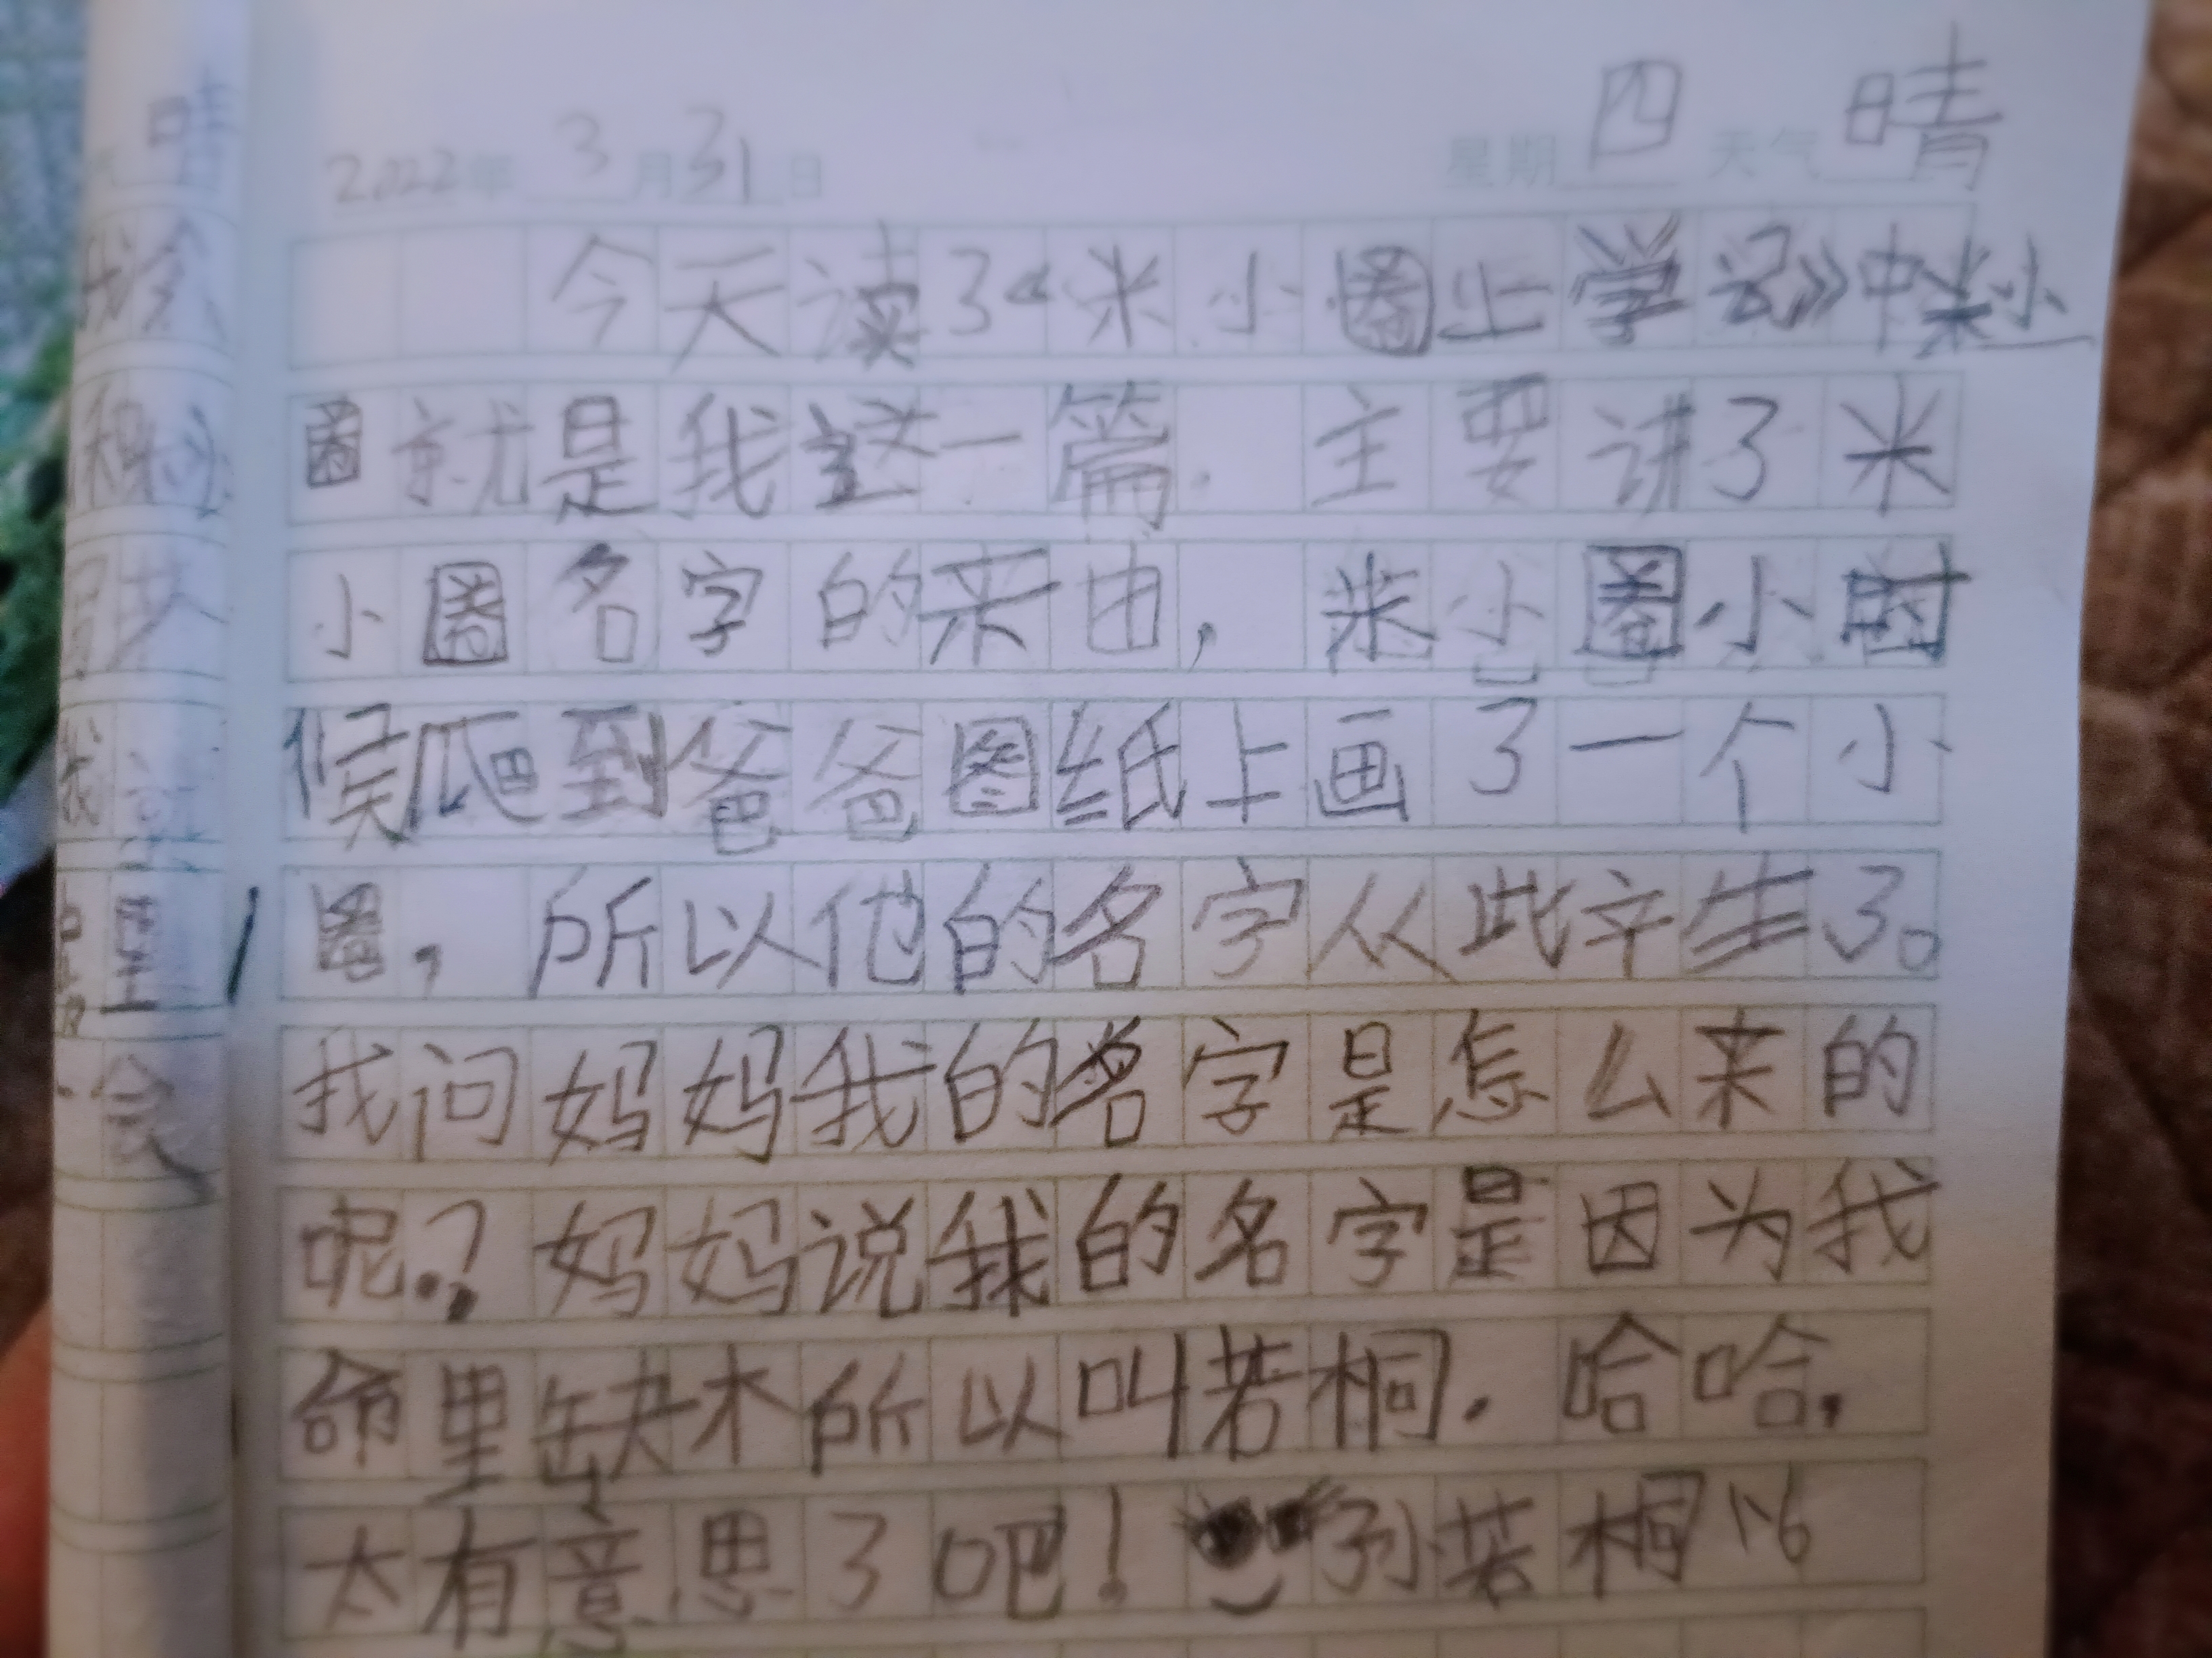 2022年 3月31日 星期四 天气 晴
今天读了《米小圈上学记》中米小
圈就是我这一篇. 主要讲了米
小圈名字的来由, 米小圈小时
候爬到爸爸图纸上画了一个小
圈, 所以他的名字从此产生了。
我问妈妈我的名字是怎么来的
呢? 妈妈说我的名字是因为我
命里缺木所以叫若桐. 哈哈.
太有意思了吧! 孙若桐